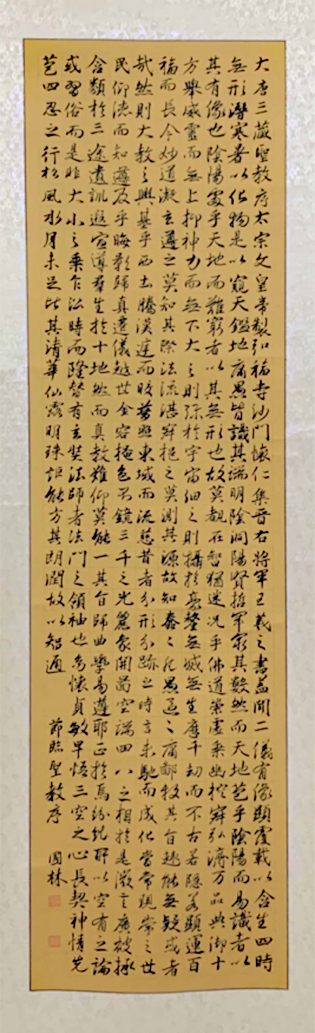 大唐三藏聖教序太宗文皇帝製弘福寺沙門懷仁集晉右將軍王羲之書蓋聞二儀有像顯覆載以含生四時
無形潛寒暑以化物是以窺天鑑地庸愚皆識其端明陰洞陽賢哲罕窮其數然而天地苞乎陰陽而易識者以
其有像也陰陽處乎天地而難窮者以其無形也故莫覩在智猶迷況乎佛道崇虛乘幽控寂弘濟萬品典御十
方舉威靈而無上抑神力而無下大之則彌於宇宙細之則攝於毫釐無滅無生歷千劫而不古若隱若顯運百
福而長今妙道凝玄遵之莫知其際法流湛寂挹之莫測其源故知蠢蠢凡愚區區庸鄙投其旨趣能無疑惑者
哉然則大教之興基乎西土騰漢庭而皎夢照東域而流慈昔者分形分跡之時言未馳而成化當常現常之世
民仰德而知遵及乎晦影歸真遷儀越世金容掩色不鏡三千之光麗象開圖空端四八之相於是微言廣被拯
含類於三途遺訓遐宣導群生於十地然而真教難仰莫能一其旨歸曲學易遵邪正於焉紛糾所以空有之論
或習俗而是非大小之乘乍沿時而隆替有玄奘法師者法門之領袖也幼懷貞敏早悟三空之心長契神情先
苞四忍之行松風水月未足比其清華仙露明珠詎能方其朗潤故以智通 節臨聖教序 國林